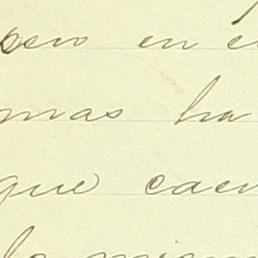 pero en e
mas ha
que caen
la misma